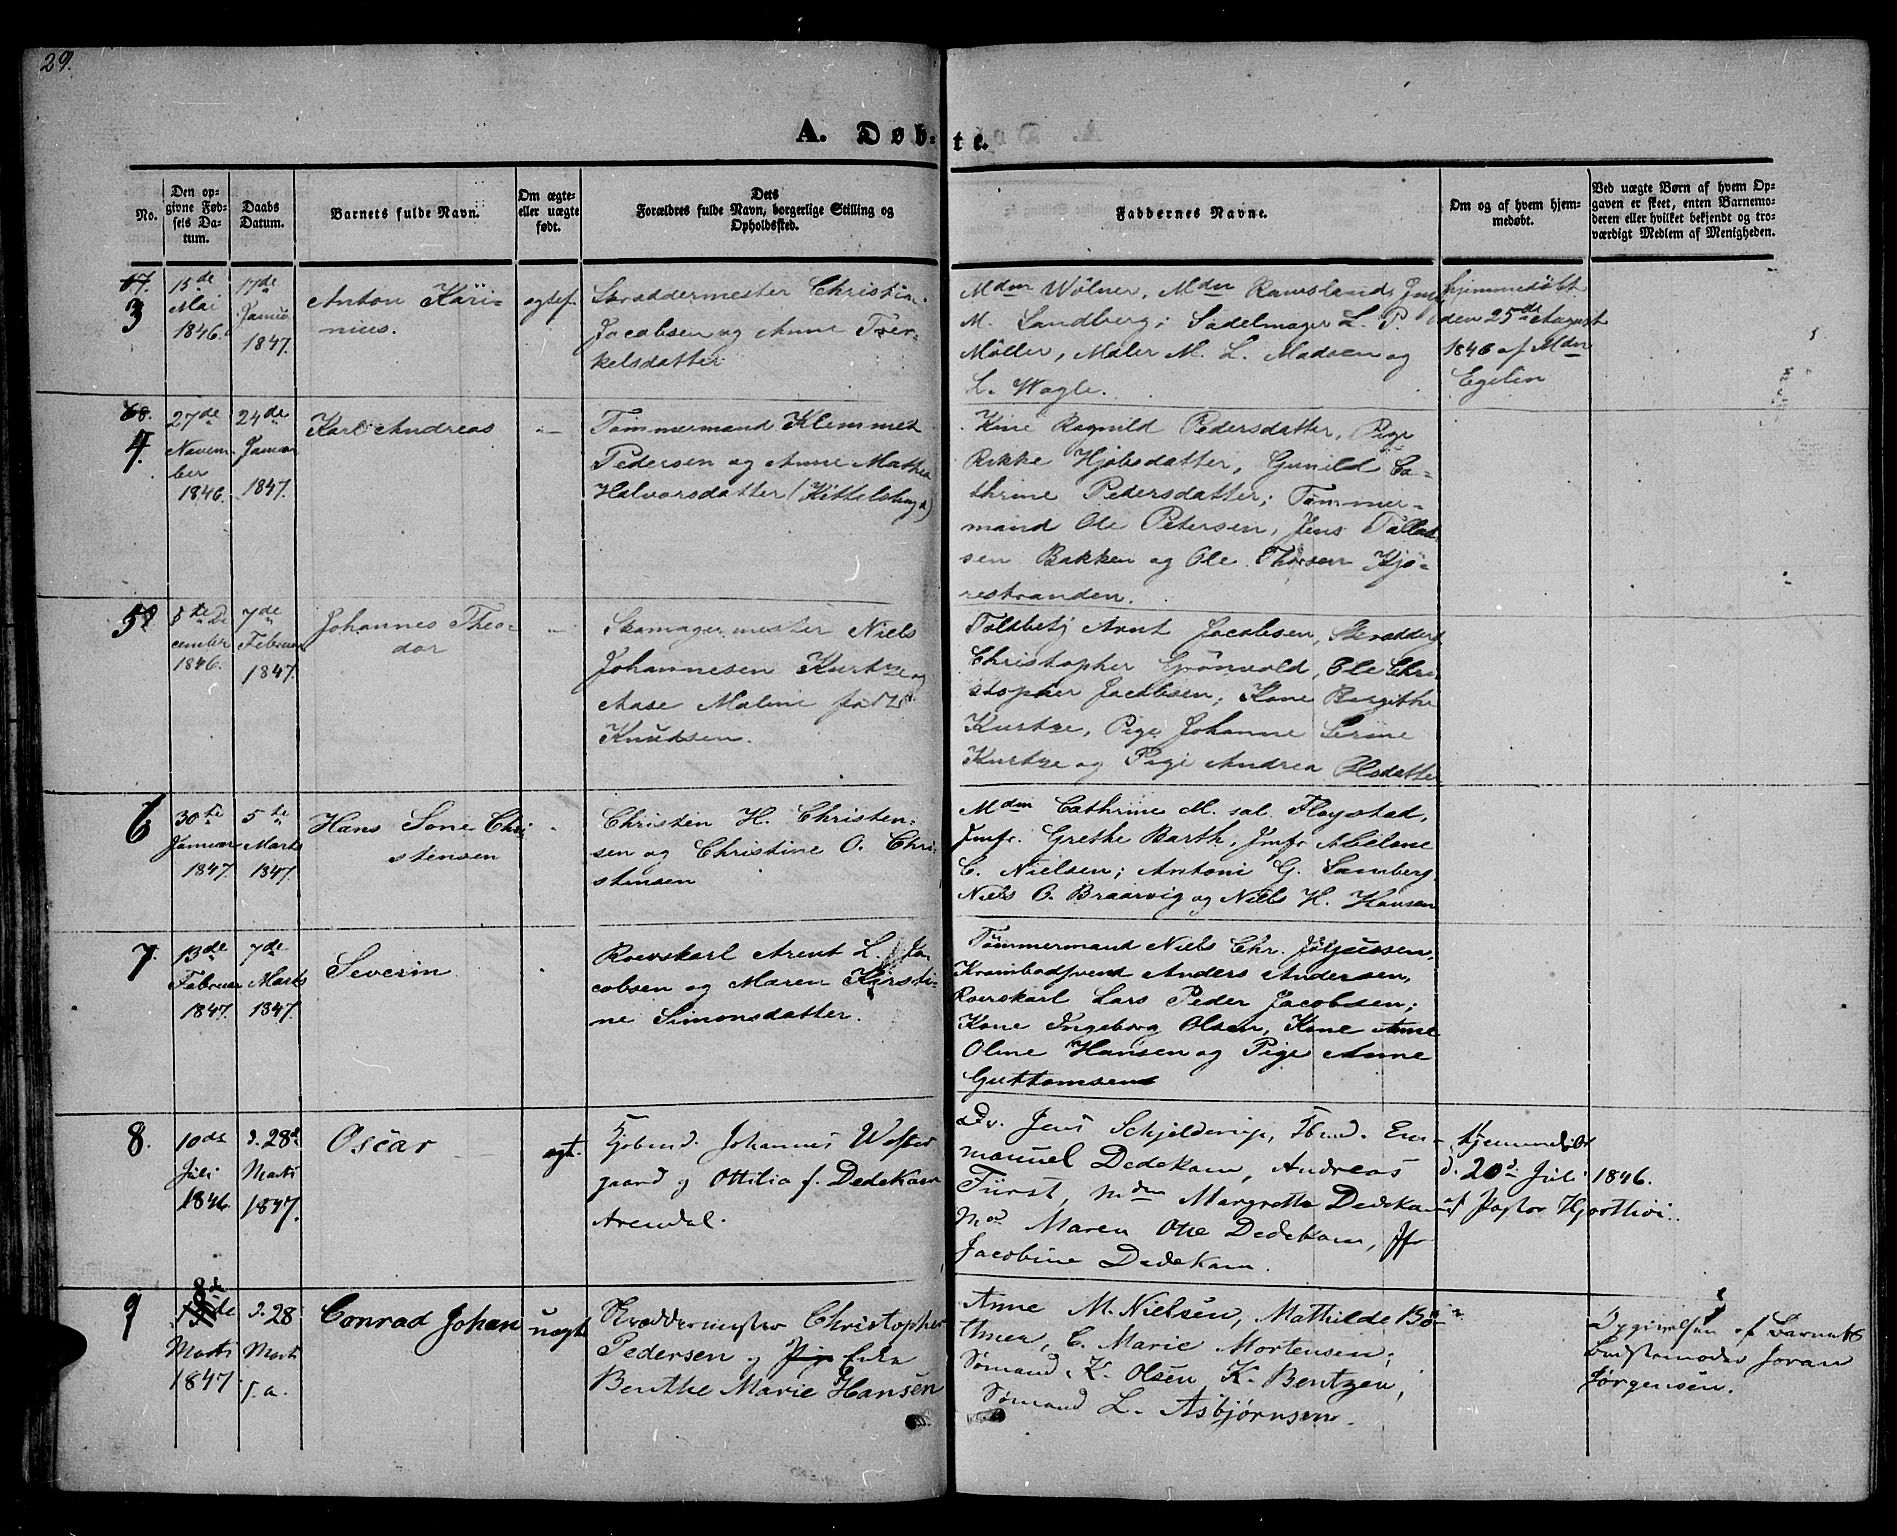 29.
A. Døb-
te.
No.
Den op-
givne Fød-
sels Da-
tum.
Daabs
Datum.
Barnets fulde Navn.
Om ægte-
eller uægte
født.
Dets
Forældres fulde Navn, borgerlige Stilling og
Opholdssted.
Faddernes Navne.
Om og af hvem hjem-
medøbt.
Ved uægte Børn af hvem Op-
gaven er skeet, enten Barnemo-
deren eller hvilket bekjendt og tro-
værdigt Medlem af Menigheden.
3
15de
Mai
1846.
17de
Januar
1847.
Anton Kari-
nius.
ægtef.
Skræddermester Christian
Jacobsen og Anne Tær-
kelsdatter
Mdm Wölner, Mdm Ravsland, Jmf
M. Sandberg; Sadelmager L. P.
Möller, Maler M. L. Madsen og
L. Wagle.
hjemmedöbt
den 25de August
1846 af Mdm
Egelin
4.
27de
Novem-
ber
1846.
24de
Januar
1847.
Karl Andreas
Tömmermand Klemmet
Pedersen og Anne Mathea
Halvorsdatter (Kittelsbugt)
Kone Ragnild Pedersdatter, Pige
Rikke Hjöbsdatter, Gunild Ca-
thrine Pedersdatter; Tömmer-
mand Ole Petersen, Jens Tallak-
sen Bakken og Ole Thorsen Kjö-
restranden.
5
5te De-
cember
1846.
7de
Februar
1847.
Johannes Theo-
dor
Skomagermester Niels
Johannesen Kurtze og
Aase Maline född
Knudsen.
Toldbetj Arnt Jacobsen, Skrædder
Christopher Grönvold, Ole Chri-
stopher Jacobsen; Kone Birgithe
Kurtze, Pige Johanne Serine
Kurtze og Pige Andrea Olsdatter
6
30te
Januar
1847.
5te
Marts
1847.
Hans Sone Chri
stensen
Christen H. Christen-
sen og Christine O. Chri-
stensen
Mdm Cathrine M. sal. Fløystad,
Jmfr. Grethe Barth, Jmfr Abelone
C. Nielsen; Antoni G. Samberg,
Niels O. Braarvig og Niels H. Hansen
7.
13de
Februar
1847.
7de
Marts
1847.
Severin
Roerskarl Arent L. Ja-
cobsen og Maren Kirsti-
ne Simonsdatter.
Tömmermand Niels Chr.
Krambodsvend Anders Andersen,
Roerskarl Lars Peder Jacobsen;
Kone Ingeborg Olsen, Kone Anne
Oline Hansen og Pige Anne
Guttomsen
8.
10de
Juli
1846.
d. 28d
Marts
1847.
Oscar
ægt.
Kjøbmd. Johannes Wester
gaard og Ottilia f. Dedekam
Arendal.
Dr. Jens Schjelderup, Kbmd. Em-
manuel Dedekam, Andreas
Fürst, Mdm Margrethe Dedekam
Md Maren Otte Dedekam, Jfr
Jacobine Dedekam.
Hjemmedøbt
d. 20d Juli 1846.
af Pastor
9
8d
Marts
1847.
d. 28
Marts
s. a.
Conrad Johan
uægte
Skræddermester Christopher
Pedersen og Pige Enke
Benthe Marie Hansen
Anne M. Nielsen, Mathilde Bö-
thner, C. Marie Mortensen;
Sømand K. Olsen K. Bentzen,
Sømand L. Asbjørnsen.
Opgivelsen af Barnets
Bedstemoder Joran
Jørgensen.